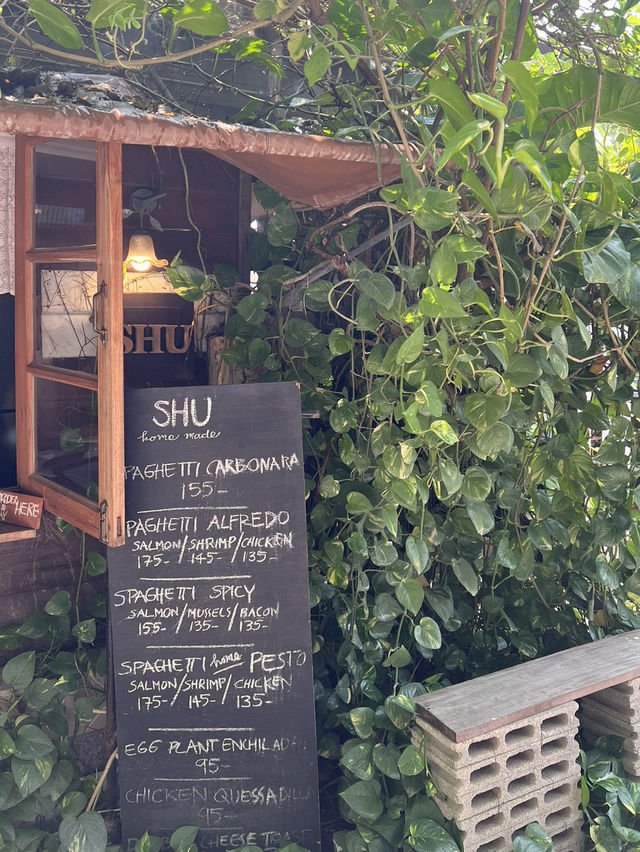 SHU
SHU
home made
PAGHETTI CARBONARA
155-
PAGHETTI ALFREDO
SALMON/SHRIMP/CHICKEN
175- / 145- / 135-
SPAGHETTI SPICY
SALMON/MUSSELS/BACON
155- / 135- / 135-
SPAGHETTI home PESTO
SALMON/SHRIMP/CHICKEN
175- / 145- / 135-
EGG PLANT ENCHILADA
95-
CHICKEN QUESSADILLA
95-
CHEESE TOAST
HERE